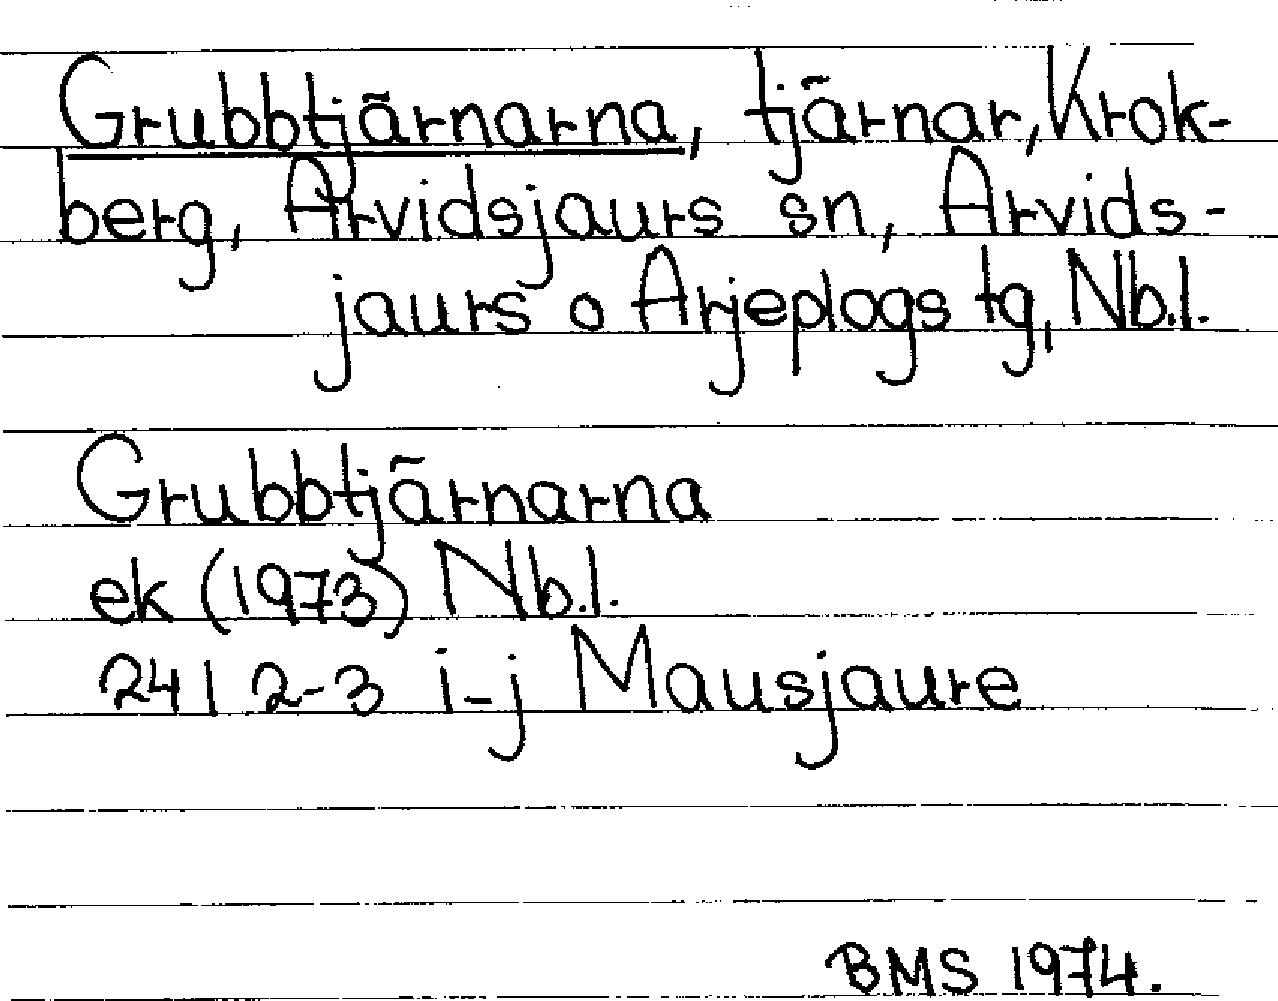 Grubbtjärnarna, tjärnar, Krok-
berg, Arvidsjaurs sn, Arvids-
jaurs o Arjeplogs tg, Nb.l.
Grubbtjärnarna
ek (1973) Nb.l.
24 I 2-3 i-j Mausjaure
BMS 1974.